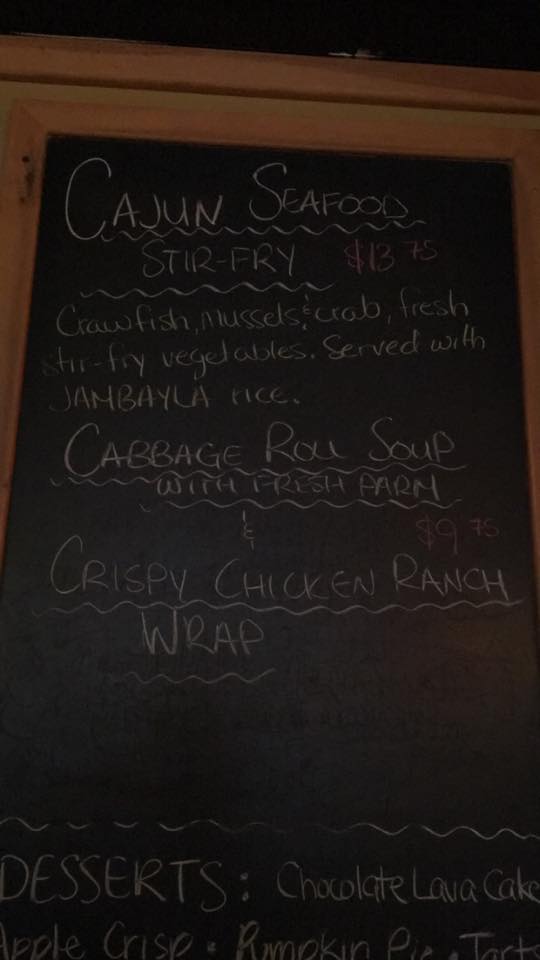 CAJUN SEAFOOD
STIR-FRY $13 75
Crawfish, mussels & crab, fresh
stir-fry vegetables. Served with
JAMBAYLA rice.
CABBAGE ROLL SOUP
WITH FRESH PARM
& $9 75
CRISPY CHICKEN RANCH
WRAP
DESSERTS: Chocolate Lava Cake
Apple Crisp • Pumpkin Pie • Tarts